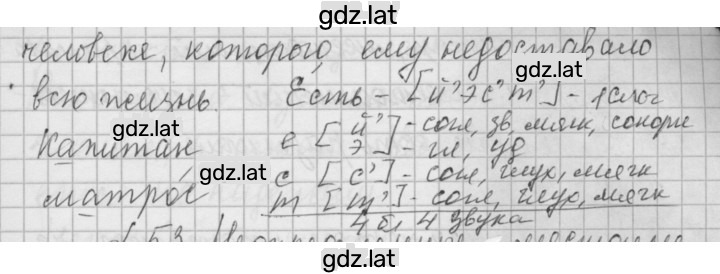 gdz.lat
человеке, которого ему недоставало
gdz.lat
всю жизнь. Есть – [й'эс'т'] – 1 слог
gdz.lat
капитан е [й'] – согл, зв, мягк, сонорн
[э] – гл, уд
gdz.lat
gdz.lat
матрос с [с'] – согл, глух, мягк
т [т'] – согл, глух, мягк
4 б, 4 звука
gdz.lat